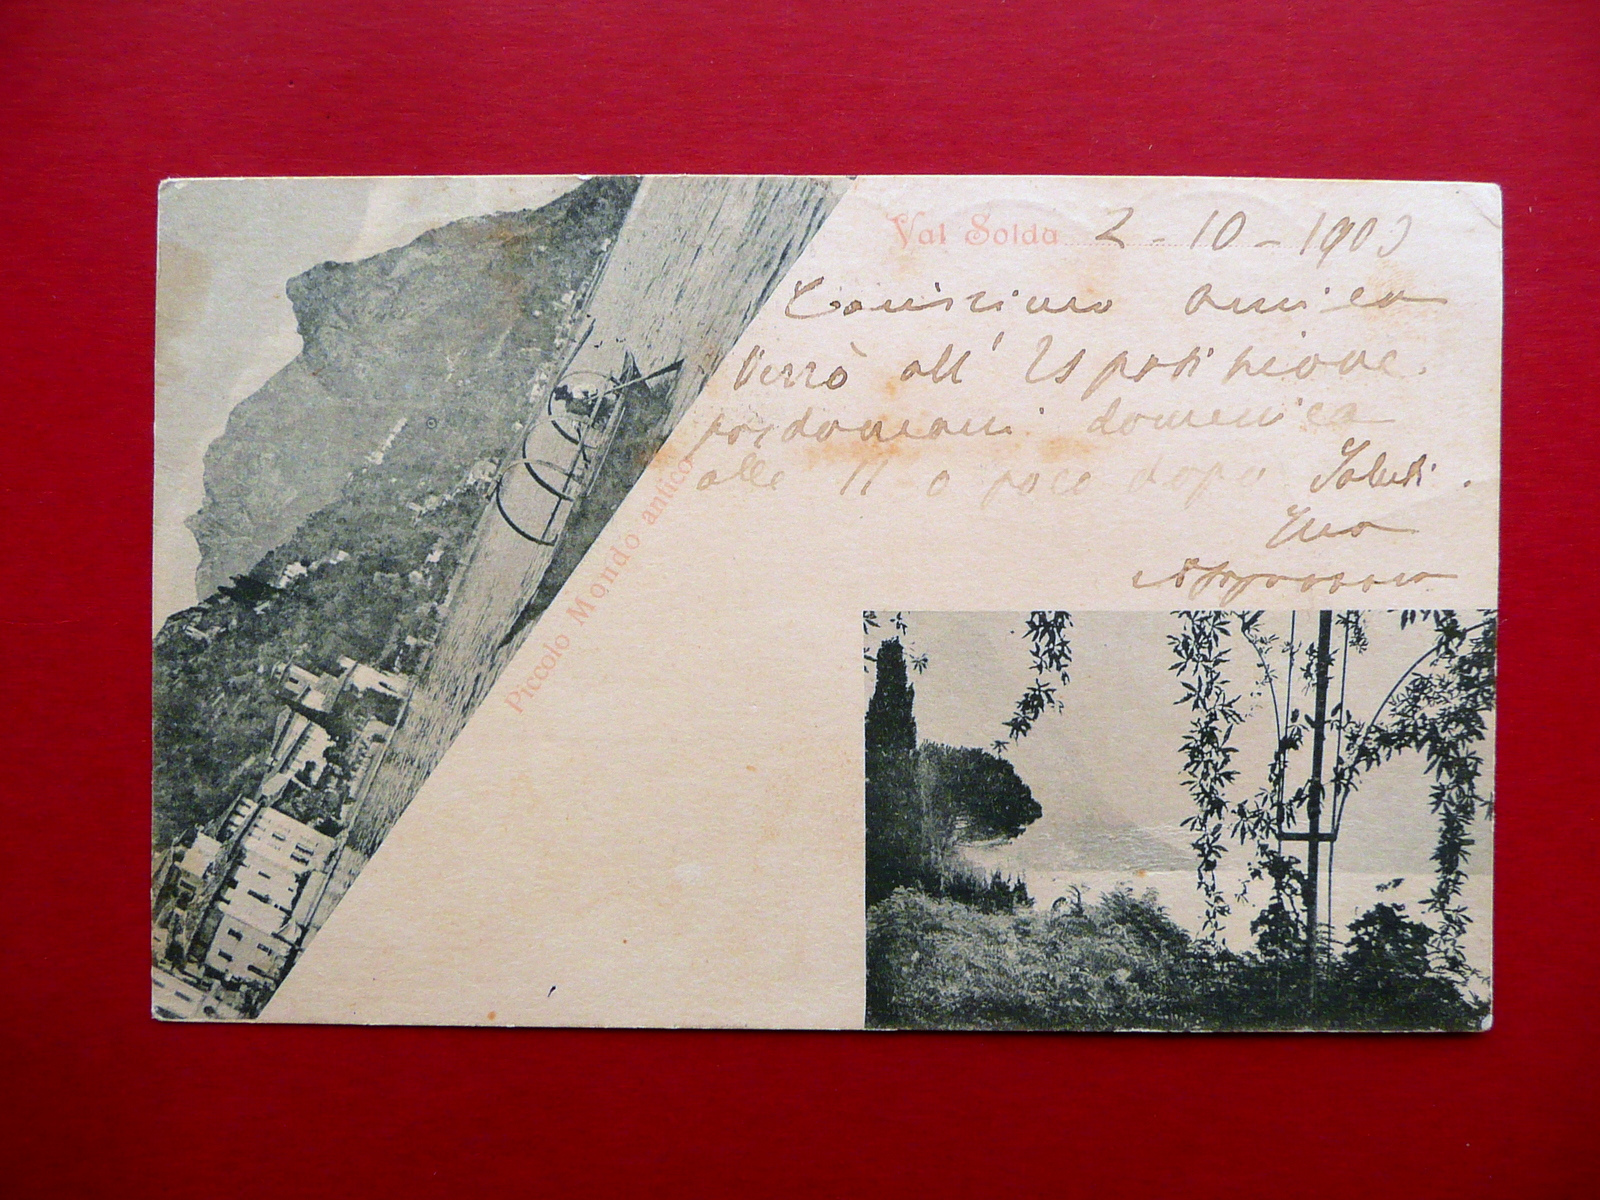 Val Solda 2 - 10 - 1903
Carissimo amico
Verrò all' Esposizione
posdomani domenica
alle 11 o poco dopo Saluti.
Suo
Piccolo Mondo antico